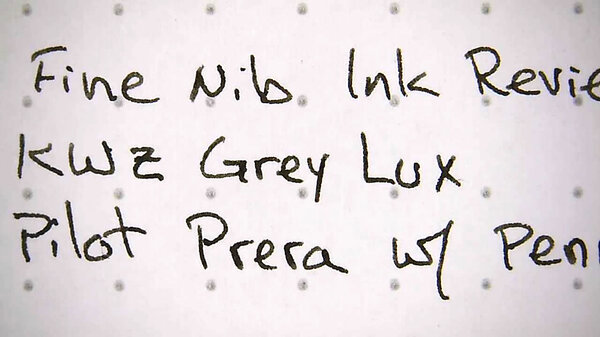 Fine Nib Ink Revie
KWZ Grey Lux
Pilot Prera w/ Pen